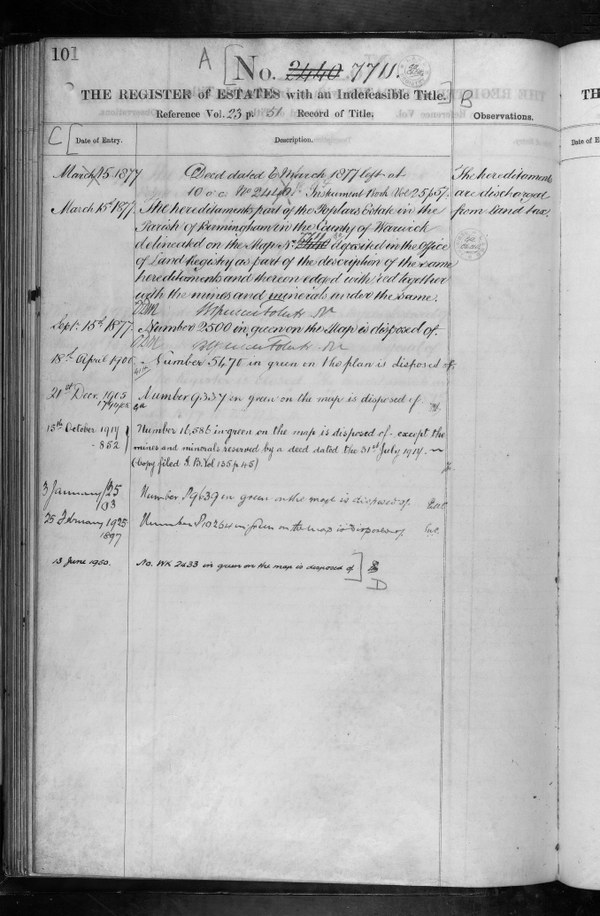 101
A [ No. 2440 7711.
THE REGISTER of ESTATES with an Indefeasible Title. ] B
Reference Vol. 23 p. 51 Record of Title.
Observations.
C [ Date of Entry.
Description.
March 15 1877
Deed dated 6 March 1877 left at
10 o c No 2440. Instrument Book Vol 25 p 57.
The hereditaments
are discharged
from Land tax.
March 15th 1877.
The hereditaments part of the Poplars Estate in the
Parish of Birmingham in the County of Warwick
delineated on the Map No 7711 deposited in the Office
of Land Registry as part of the description of the same
hereditaments and thereon edged with red together
with the mines and minerals under the same.
Septr. 15th 1877.
Number 2500 in green on the Map is disposed of.
18th April 1900
Number 5470 in green on the plan is disposed of.
21st Decr. 1905
Number 9337 on green on the map is disposed of
13th October 1919
852
Number 16,585 in green on the map is disposed of except the
mines and minerals reserved by a deed dated the 31st July 1919.
(Copy filed I. B. Vol 155 p 45)
3 January /25
03
Number P9639 in green on the map is disposed of.
25 February 1925
1897
Number P10261 in green on the map is disposed of
13 June 1950.
No. WK 2233 in green on the map is disposed of ]
D
TH
Date of E